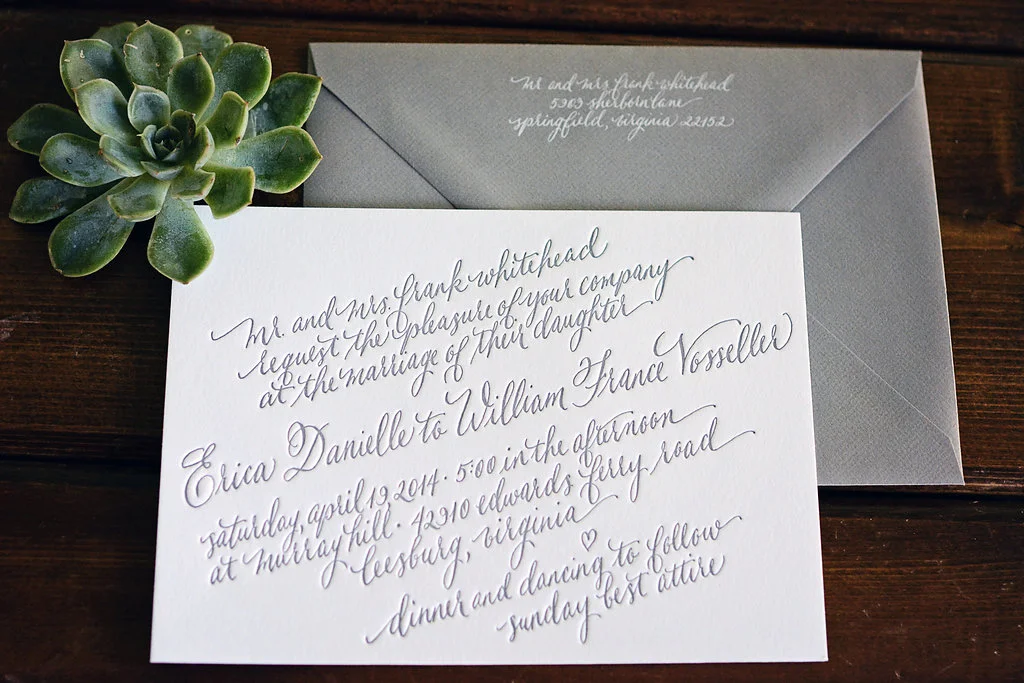 mr and mrs frank whitehead
5303 sherborn lane
springfield, virginia 22152
mr. and mrs. frank whitehead
request the pleasure of your company
at the marriage of their daughter
Erica Danielle to William France Vosseller
saturday, april 19 2014 · 5:00 in the afternoon
at murray hill · 42910 edwards ferry road
leesburg, virginia
dinner and dancing to follow
sunday best attire